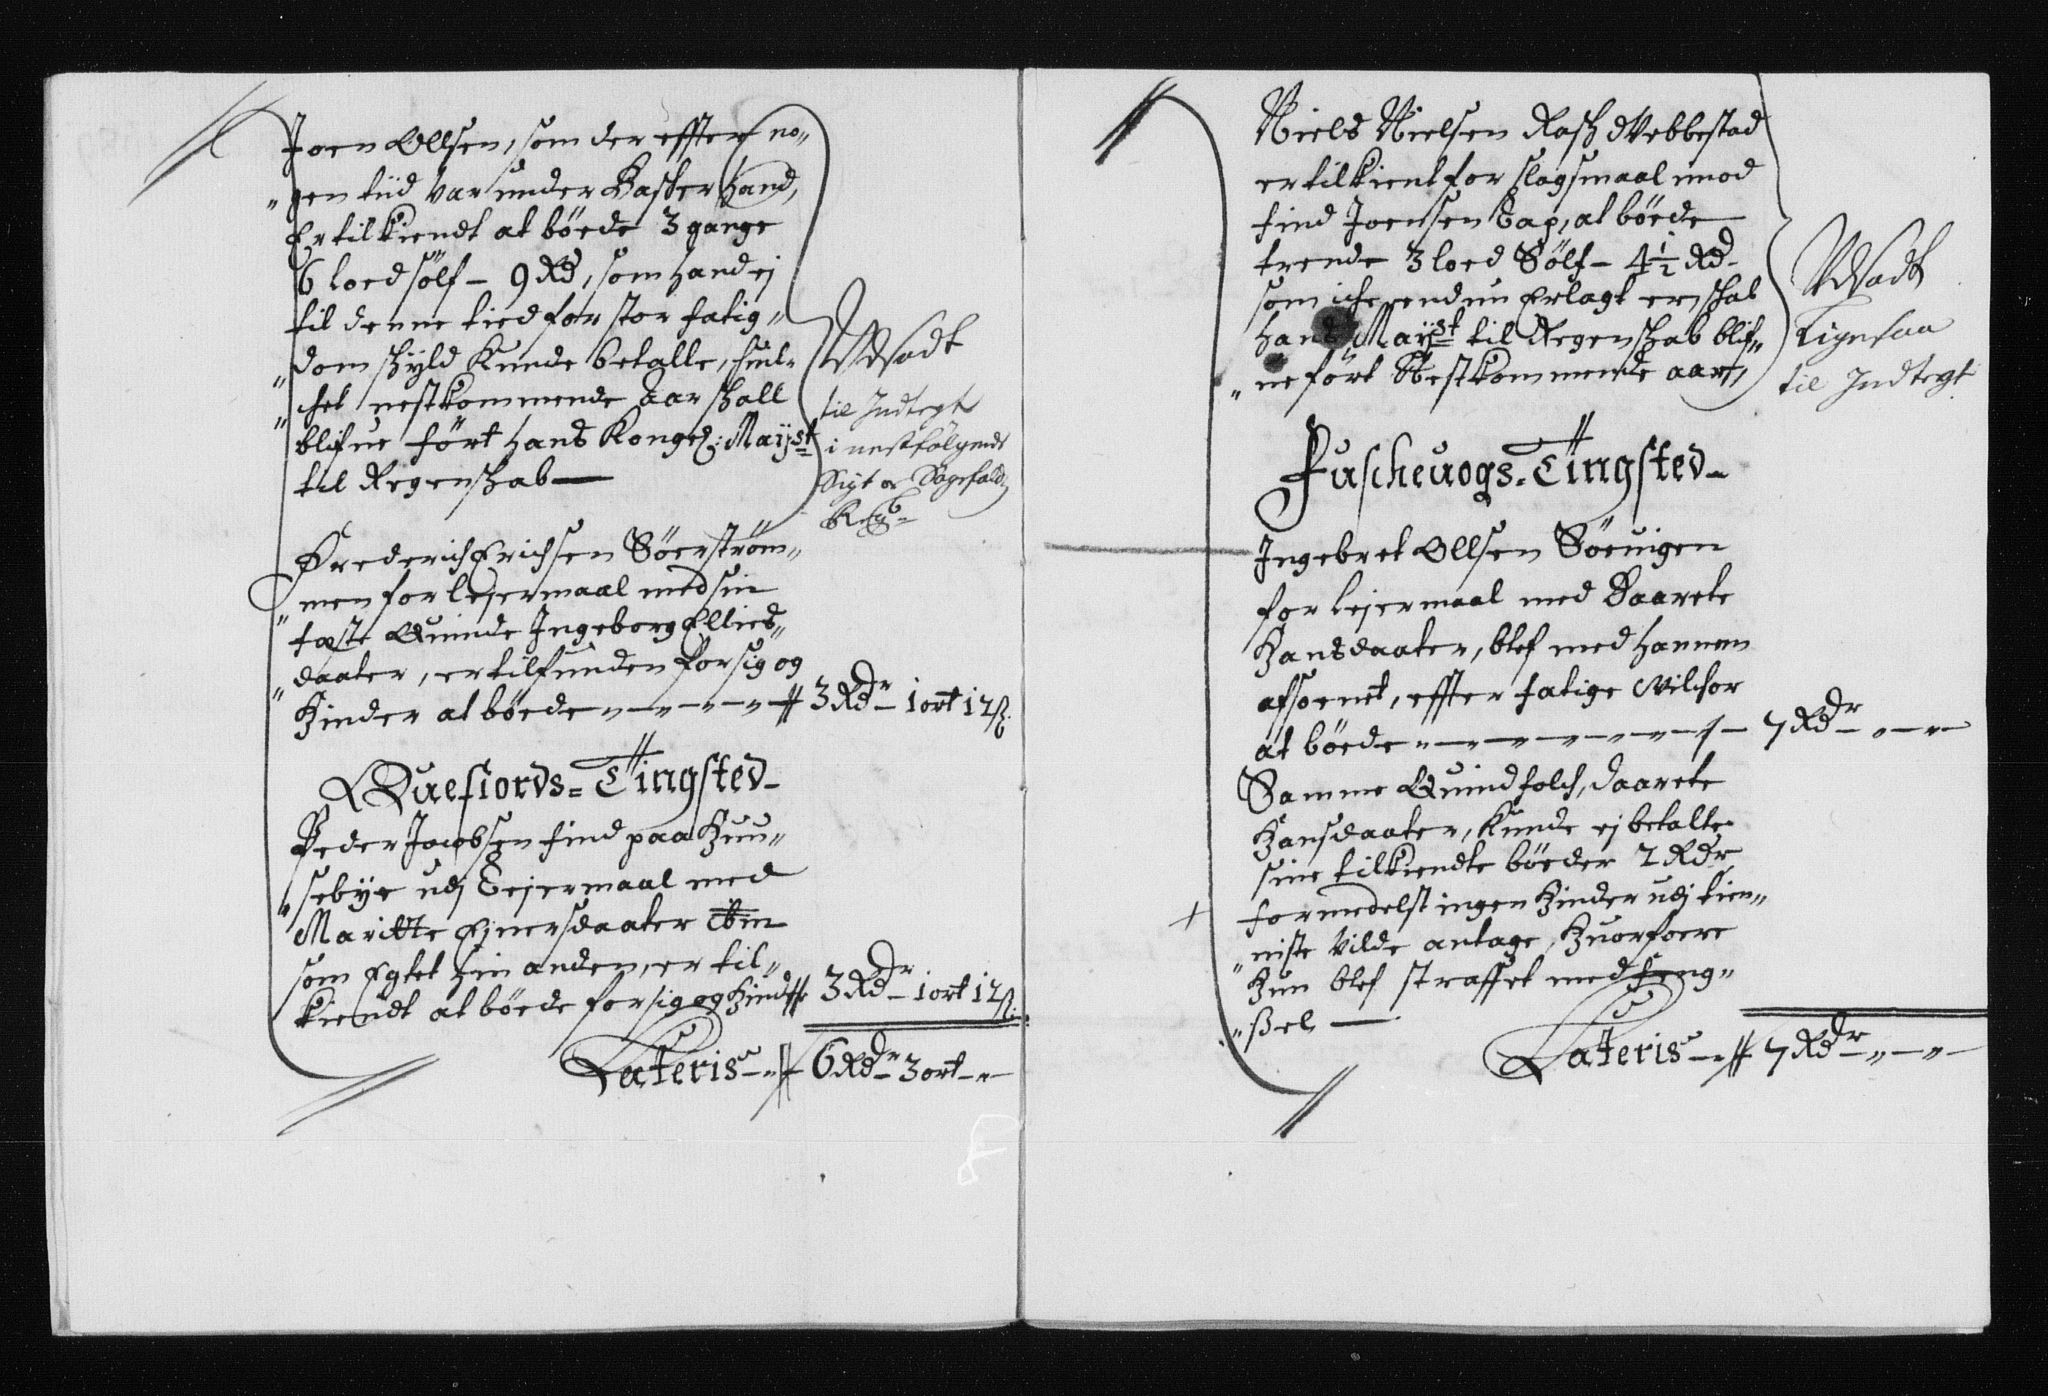 Joen Ollsen, som der effter no„
„gen tiid Var under Basker Hand,
Er tilkiendt at böede 3 gange
6 loed sölf – 9 Rd, som hand ej
til denne tied for stor fatig„
„dom skyld Kunde betalle, huil„
„chet nestkommende Aar skall
blifue fört Hans Konge: Mayst
til Regenskab —
Udsadt
til Indtegt
i nestfölgende
Sigt oc Sagefalds
Regb
Frederich Erichsen Söerström„
„men for lejermaal med sin
fæste Quinde Ingeborg Ellies„
„daater, er tilfunden for sig og
Hinder at böede 3 Rdr – 1 ort 12 ß:
Quefiords = Tingsted –
Peder Jacobsen find paa Huu„
„sebye udj Lejermaal med
Maritte Ejnersdaater
som Egtet hin anden, er til„
kiendt at böede for sig og Hinde 3 Rdr – 1 ort 12 ß:
Lateris – 6 Rdr – 3 ort –
Niels Nielsen Rask Vebbestad
er tilkient for slagsmaal imod
find Joensen Tap, at böede
trende 3 loed Sölf – 4½ Rd –
som iche endnu Erlagt er, skal
Hans Mayst til Regenskab blif„
„ue fört Nestkommende aar,
Udsadt
Ligesaa
til Indtegt
Fuscheuogs = Tingsted –
Ingebret Ollsen Söeuigen
for lejermaal med Daarete
Hansdaater, blef med hannem
afsoenet, effter fatige Vilchor
at böede 7 Rdr –
Samme Quindfolch, Daarete
Hansdaater, Kunde ej betalte
sine tilkiendte böeder 2 Rdr
formedelst ingen Hinder udj tien„
„niste Vilde antage, Huorfore
Hun blef straffet med feng„
„ßel —
Lateris – 7 Rdr –